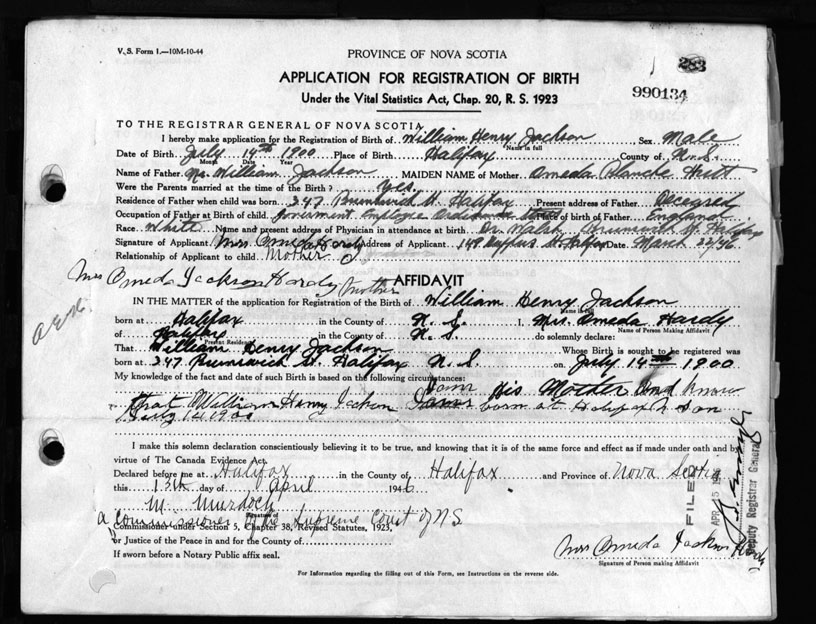 V. S. Form 1.—10M-10-44
PROVINCE OF NOVA SCOTIA
283
APPLICATION FOR REGISTRATION OF BIRTH
990134
Under the Vital Statistics Act, Chap. 20, R. S. 1923
TO THE REGISTRAR GENERAL OF NOVA SCOTIA
I hereby make application for the Registration of Birth of William Henry Jackson Sex Male
Name in full
Date of Birth July 14th 1900 Place of Birth Halifax County of N.S.
Month Date Year
Name of Father Mr. William Jackson MAIDEN NAME of Mother Omeda Blanche
Were the Parents married at the time of the Birth? Yes
Residence of Father when child was born 347 Brunswick St. Halifax Present address of Father Deceased
Occupation of Father at Birth of child Government Employee Place of birth of Father England
Race White Name and present address of Physician in attendance at birth Dr. Brunswick St. Halifax
Signature of Applicant Mrs Omeda Hardy Address of Applicant 149 St Halifax Date March 22/46
Relationship of Applicant to child Mother
Mrs Omeda Jackson Hardy Mother
AFFIDAVIT
IN THE MATTER of the application for Registration of the Birth of William Henry Jackson
Name in full
born at Halifax in the County of N.S. I, Mrs. Omeda Hardy
Name of Person Making Affidavit
of Halifax in the County of N.S. do solemnly declare:
Present Residence
That William Henry Jackson Whose Birth is sought to be registered was
born at 347 Brunswick St. Halifax N.S. on July 14th 1900
My knowledge of the fact and date of such Birth is based on the following circumstances:
I am His Mother and know
that William Henry Jackson was born at Halifax on
July 14 1900
I make this solemn declaration conscientiously believing it to be true, and knowing that it is of the same force and effect as if made under oath and by
virtue of The Canada Evidence Act.
Declared before me at Halifax in the County of Halifax and Province of Nova Scotia
this 13th day of April 1946
M. Murdoch
Signature of
a Commissioner of the Supreme Court of N.S.
Commissioner under Section 5, Chapter 38, Revised Statutes, 1923,
or Justice of the Peace in and for the County of
If sworn before a Notary Public affix seal.
Mrs Omeda Jackson Hardy
Signature of Person making Affidavit
For Information regarding the filling out of this Form, see Instructions on the reverse side.
FILED
APR 15
Deputy Registrar General